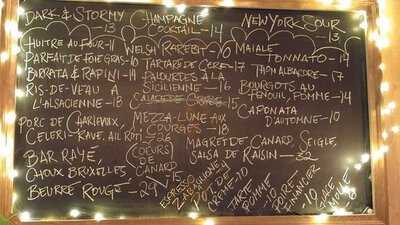 DARK & STORMY -13
CHAMPAGNE COCKTAIL -14
NEW YORK SOUR 13
HUITRE AU FOUR - 11
PARFAIT DE FOIE GRAS - 10
BURRATA & RAPINI - 14
RIS-DE-VEAU À
L'ALSACIENNE - 18
PORC DE CHARLEVOIX,
CELERI-RAVE, AIL ROTI - 26
BAR RAYÉ,
CHOUX BRUXELLES,
BEURRE ROUGE - 29
WELSH RAREBIT - 10
TARTARE DE CERF - 17
PALOURDES À LA
SICILIENNE - 16
MEZZA-LUNE AUX
COURGES - 18
COEURS
DE
CANARD
- 15
MAIALE
TONNATO - 14
BOURGOTS AU
FENOUIL, POMME - 14
CAPONATA
D'AUTOMNE - 10
MAGRET DE CANARD, SEIGLE,
SALSA DE RAISIN - 32
ESPRESSO
ZABAGLIONE
POT DE
CRÈME - 10
TARTE
POMME - 10
POIRE
FINANCIER
- 10